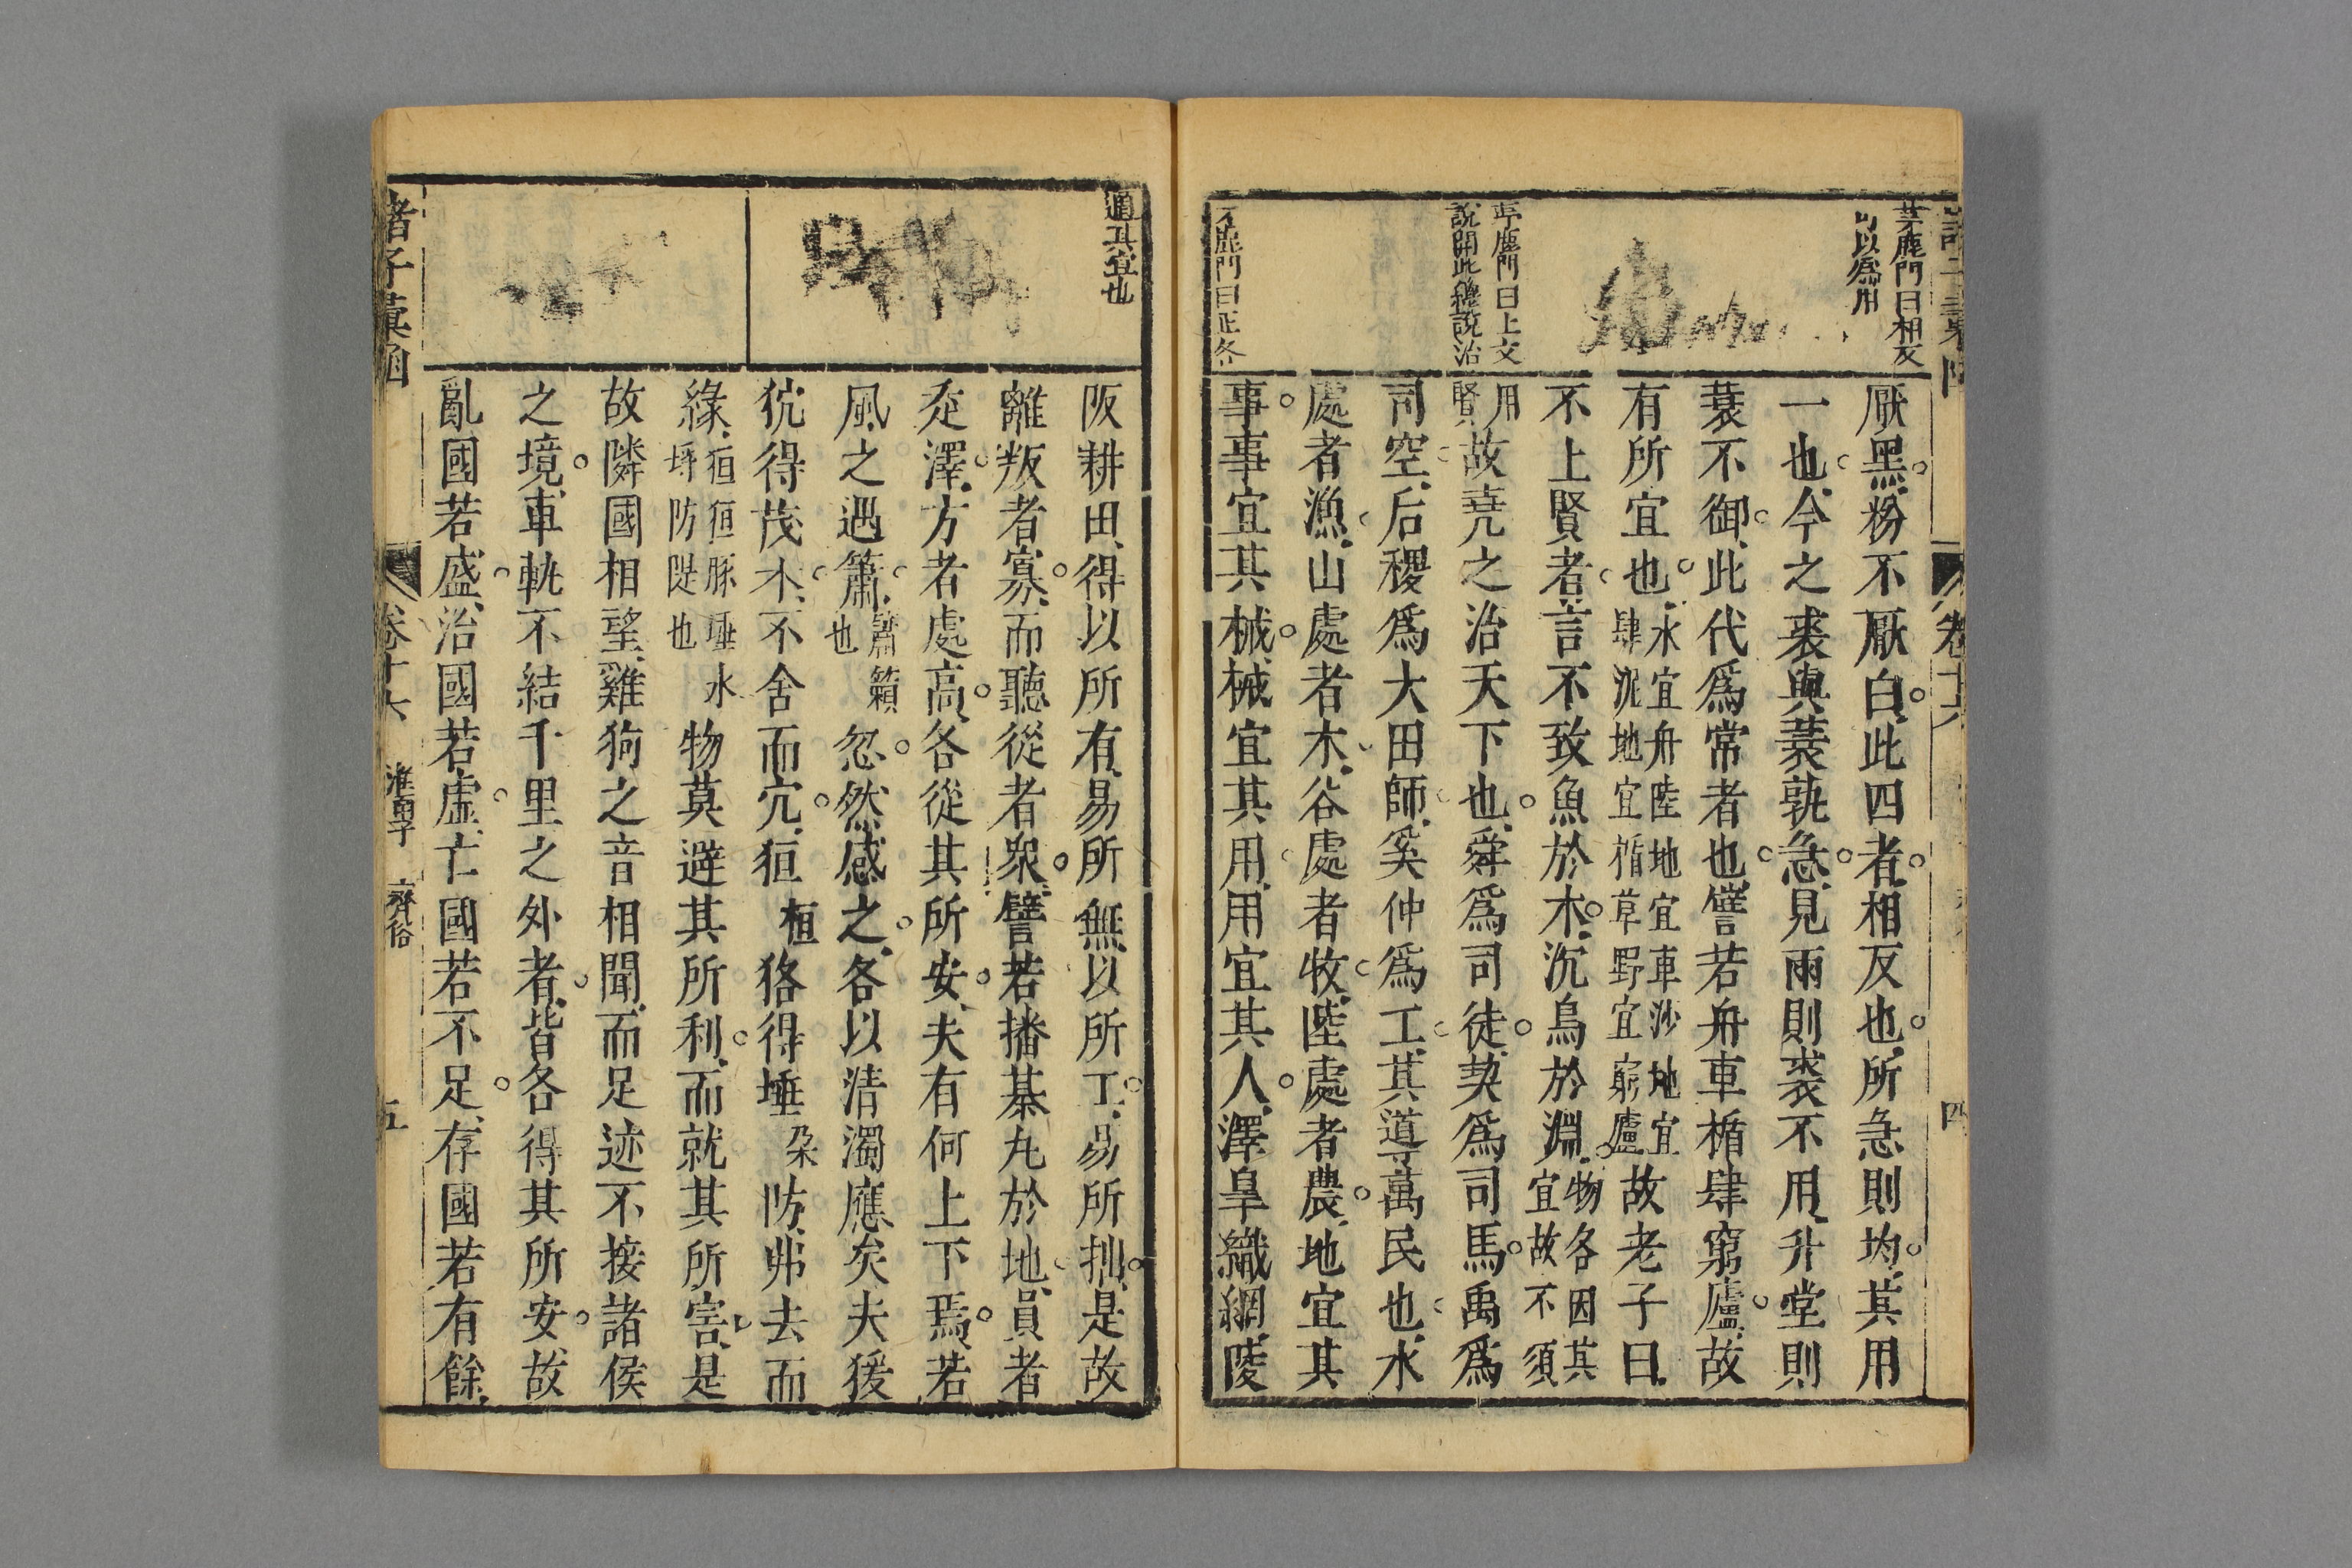 茅鹿門曰相反
可以爲用
厭黑粉不厭白此四者相反也所急則均其用
一也今之裘與蓑孰急見雨則裘不用升堂則
蓑不御此代爲常者也譬若舟車楯肆窮廬故
有所宜也水宜舟陸地宜車沙地宜
肆泥地宜楯草野宜窮廬故老子曰
不上賢者言不致魚於木沉鳥於淵物各因其
宜故不須
茅鹿門曰上文
說開此纔說治
用
賢故堯之治天下也舜爲司徒契爲司馬禹爲
司空后稷爲大田師奚仲爲工其道萬民也水
處者漁山處者木谷處者牧陸處者農地宜其
茅鹿門曰正各
事事宜其械械宜其用用宜其人澤皐織網陵
適其宜也
阪耕田得以所有易所無以所工易所拙是故
離叛者寡而聽從者衆譬若播棊丸於地員者
走澤方者處高各從其所安夫有何上下焉若
風之遇簫簫籟
也忽然感之各以淸濁應矣夫猨
狖得茂木不舍而穴狟桓狢得埵朶防弗去而
緣狟狟豚埵水
埒防隄也物莫避其所利而就其所害是
故隣國相望雞狗之音相聞而足迹不接諸侯
之境車軌不結千里之外者皆各得其所安故
亂國若盛治國若虛亡國若不足存國若有餘
諸子彙函
卷十六
淮南子
齊俗
五